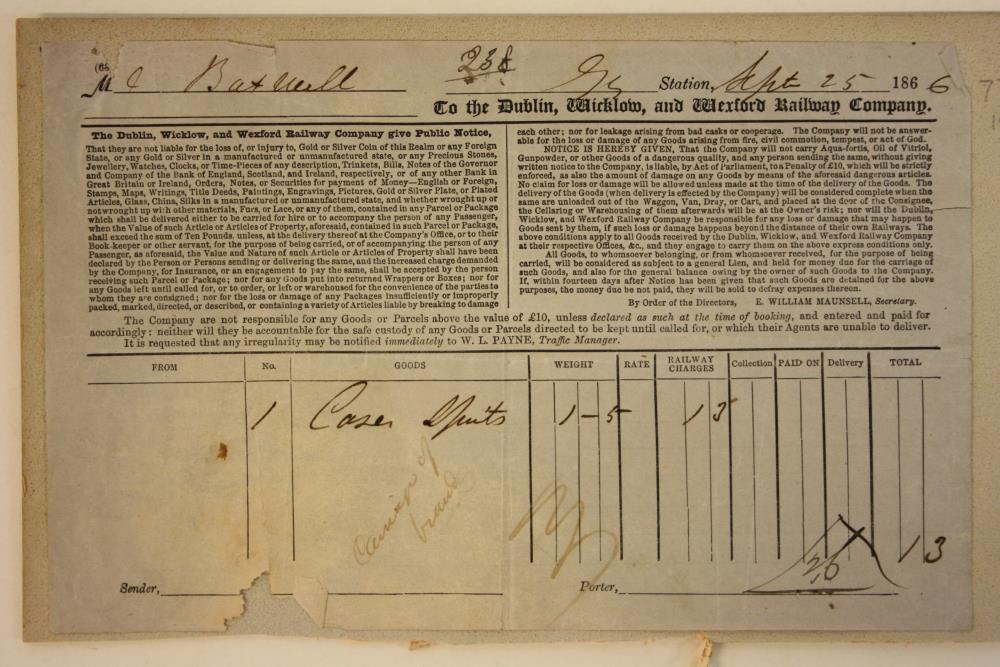 M Boxwell 238 Gy Station, Sept 25 1866
To the Dublin, Wicklow, and Wexford Railway Company.
The Dublin, Wicklow, and Wexford Railway Company give Public Notice,
That they are not liable for the loss of, or injury to, Gold or Silver Coin of this Realm or any Foreign
State, or any Gold or Silver in a manufactured or unmanufactured state, or any Precious Stones,
Jewellery, Watches, Clocks, or Time-Pieces of any description, Trinkets, Bills, Notes of the Governor
and Company of the Bank of England, Scotland, and Ireland, respectively, or of any other Bank in
Great Britain or Ireland, Orders, Notes, or Securities for payment of Money—English or Foreign,
Stamps, Maps, Writings, Title Deeds, Paintings, Engravings, Pictures, Gold or Silver Plate, or Plated
Articles, Glass, China, Silks in a manufactured or unmanufactured state, and whether wrought up or
not wrought up with other materials, Furs, or Lace, or any of them, contained in any Parcel or Package
which shall be delivered either to be carried for hire or to accompany the person of any Passenger,
when the Value of such Article or Articles of Property, aforesaid, contained in such Parcel or Package,
shall exceed the sum of Ten Pounds, unless, at the delivery thereof at the Company's Office, or to their
Book-keeper or other servant, for the purpose of being carried, or of accompanying the person of any
Passenger, as aforesaid, the Value and Nature of such Article or Articles of Property shall have been
declared by the Person or Persons sending or delivering the same, and the increased charge demanded
by the Company, for Insurance, or an engagement to pay the same, shall be accepted by the person
receiving such Parcel or Package; nor for any Goods put into returned Wrappers or Boxes; nor for
any Goods left until called for, or to order, or left or warehoused for the convenience of the parties to
whom they are consigned; nor for the loss or damage of any Packages insufficiently or improperly
packed, marked, directed, or described, or containing a variety of Articles liable by breaking to damage
each other; nor for leakage arising from bad casks or cooperage. The Company will not be answer-
able for the loss or damage of any Goods arising from fire, civil commotion, tempest, or act of God.
NOTICE IS HEREBY GIVEN, That the Company will not carry Aqua-fortis, Oil of Vitriol,
Gunpowder, or other Goods of a dangerous quality, and any person sending the same, without giving
written notice to the Company, is liable, by Act of Parliament, to a Penalty of £10, which will be strictly
enforced, as also the amount of damage on any Goods by means of the aforesaid dangerous articles.
No claim for loss or damage will be allowed unless made at the time of the delivery of the Goods. The
delivery of the Goods (when delivery is effected by the Company) will be considered complete when the
same are unloaded out of the Waggon, Van, Dray, or Cart, and placed at the door of the Consignee,
the Cellaring or Warehousing of them afterwards will be at the Owner's risk; nor will the Dublin,
Wicklow, and Wexford Railway Company be responsible for any loss or damage that may happen to
Goods sent by them, if such loss or damage happens beyond the distance of their own Railways. The
above conditions apply to all Goods received by the Dublin, Wicklow, and Wexford Railway Company
at their respective Offices, &c., and they engage to carry them on the above express conditions only.
All Goods, to whomsoever belonging, or from whomsoever received, for the purpose of being
carried, will be considered as subject to a general Lien, and held for money due for the carriage of
such Goods, and also for the general balance owing by the owner of such Goods to the Company.
If, within fourteen days after Notice has been given that such Goods are detained for the above
purposes, the money due be not paid, they will be sold to defray expenses thereon.
By Order of the Directors, E. WILLIAM MAUNSELL, Secretary.
The Company are not responsible for any Goods or Parcels above the value of £10, unless declared as such at the time of booking, and entered and paid for
accordingly: neither will they be accountable for the safe custody of any Goods or Parcels directed to be kept until called for, or which their Agents are unable to deliver.
It is requested that any irregularity may be notified immediately to W. L. PAYNE, Traffic Manager.
FROM No. GOODS WEIGHT RATE RAILWAY CHARGES Collection PAID ON Delivery TOTAL
1 Case Spirits 1-5 1 3
Carriage of
1 3
26
Sender, Porter,